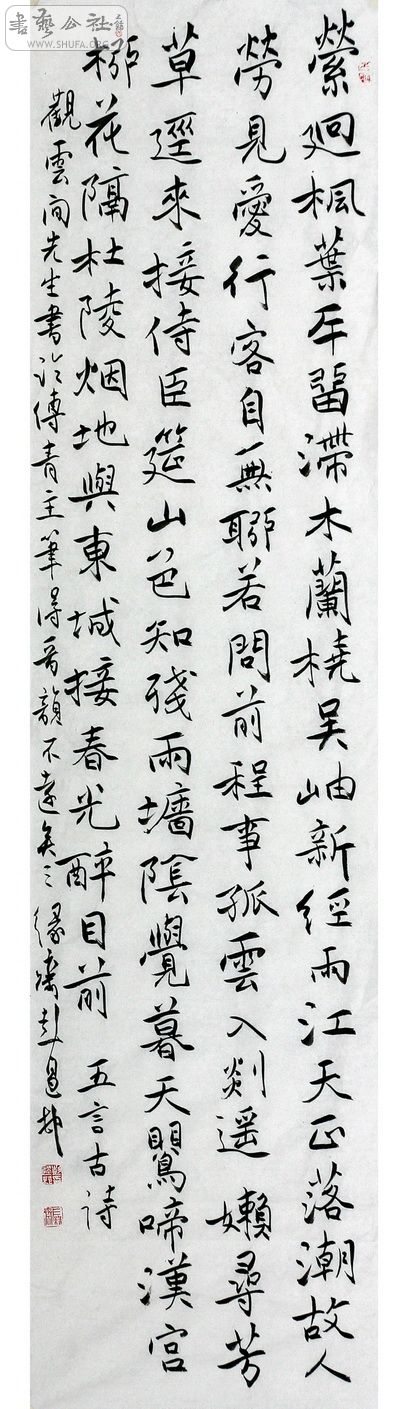 縈迴楓葉岸留滯木蘭橈吳岫新經雨江天正落潮故人
勞見愛行客自無聊若問前程事孤雲入剡遥 嬾尋芳
草逕來接侍臣筵山色知殘雨墻陰覺暮天鸎啼漢宮
柳花隔杜陵烟地與東城接春光醉目前 五言古詩
觀雲間先生書法傅青主筆得晋韻不遠矣 緣
書藝公社
WWW.SHUFA.ORG